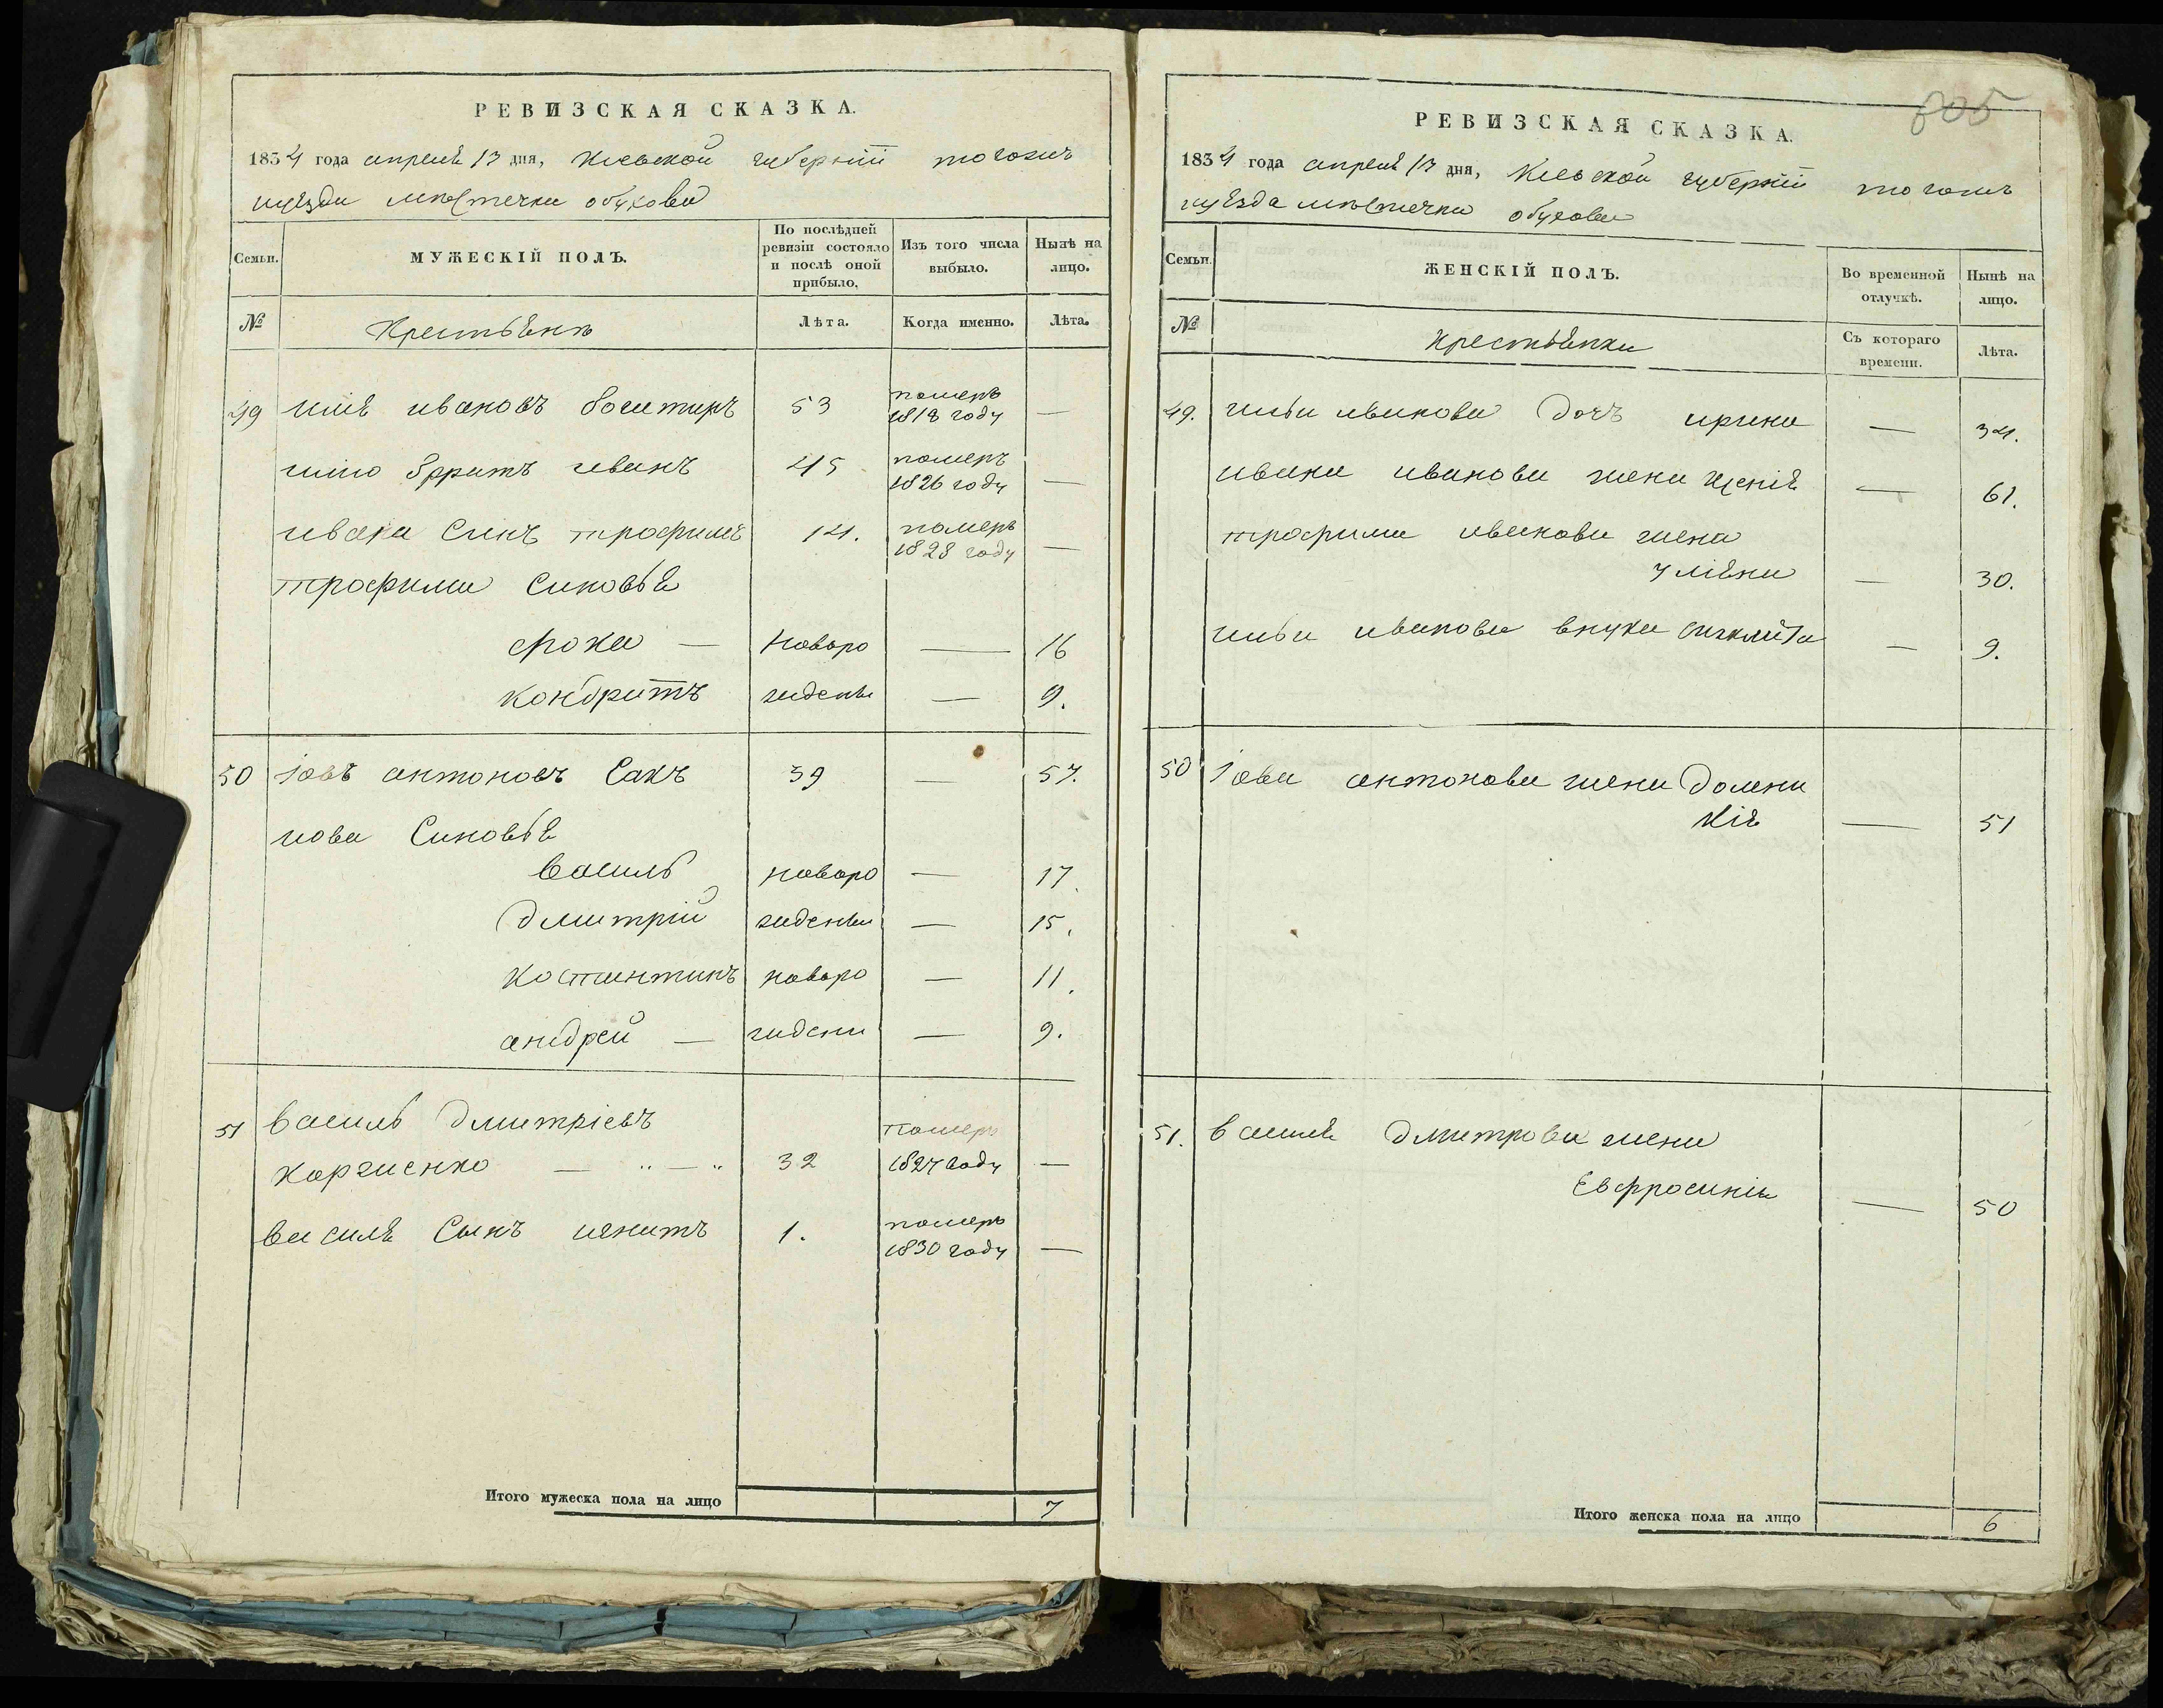 РЕВИЗСКАЯ СКАЗКА.
1834 года апреля 13 дня, Киевской губернїи тогожъ
уезда мѣстечка обухова
Семьи.
МУЖЕСКІЙ ПОЛЪ.
По послѣдней ревизіи состояло и послѣ оной прибыло.
Изъ того числа выбыло.
Нынѣ на лицо.
№
Крестьянъ
Лѣта.
Когда именно.
Лѣта.
49 ивановъ 53 померъ 1818 году —
братъ иванъ 45 померъ 1826 году —
ивана Синъ трофимъ 14. померъ 1828 году —
трофима Синовья
фока — новоро — 16
кондратъ ждены — 9.
50 Іовъ антоновъ Сакъ 39 — 57.
иова Синовья
василь новоро — 17.
дмитрій жденны — 15.
костантинъ новоро — 11.
андрей — ждени — 9.
51 василь дмитріевъ
32 померъ 1827 году —
василя Сынъ игнатъ 1. померъ 1830 году —
Итого мужеска пола на лицо 7
805
РЕВИЗСКАЯ СКАЗКА.
1834 года апреля 13 дня, Киевской губернїи тогожъ
уезда мѣстечка обухова
Семьи.
ЖЕНСКІЙ ПОЛЪ.
Во временной отлучкѣ.
Нынѣ на лицо.
№
Крестьянки
Съ котораго времени.
Лѣта.
49. ильи иванова дочъ ирина — 34.
ивана иванова жена — 61.
трофима иванова жена
улияна — 30.
ильи иванова внука — 9.
50 Іова антонова жена домни
кія — 51
51. василя дмитрова жена
Евфросинія — 50
Итого женска пола на лицо 6